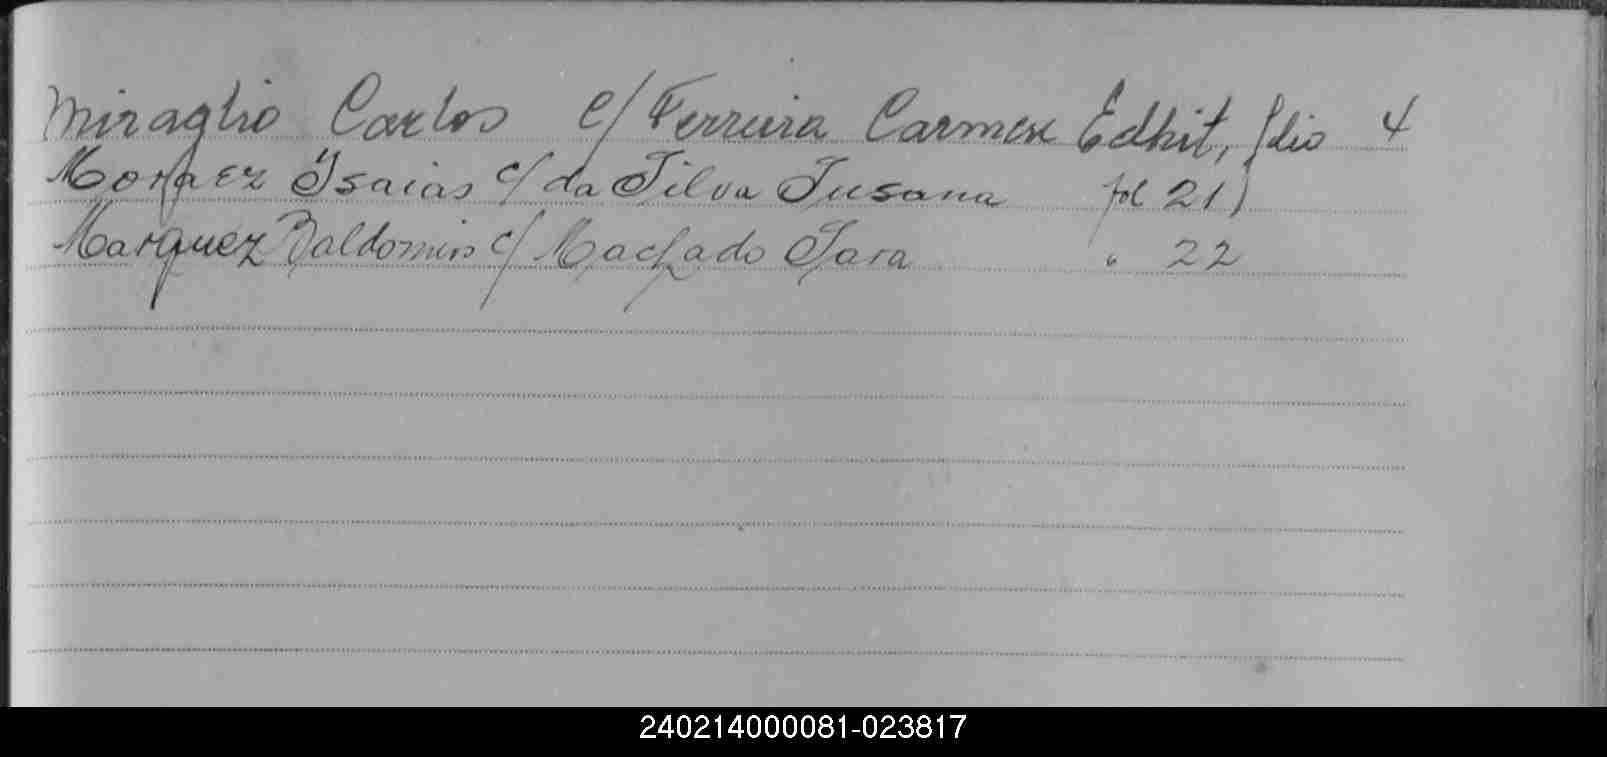 Miraglio Carlos c/ Ferreira Carmen Edhit, folio 4
Moraez Isaias c/ da Silva Susana fol 21)
Marquez Baldomiro c/ Machado Sara " 22
240214000081-023817